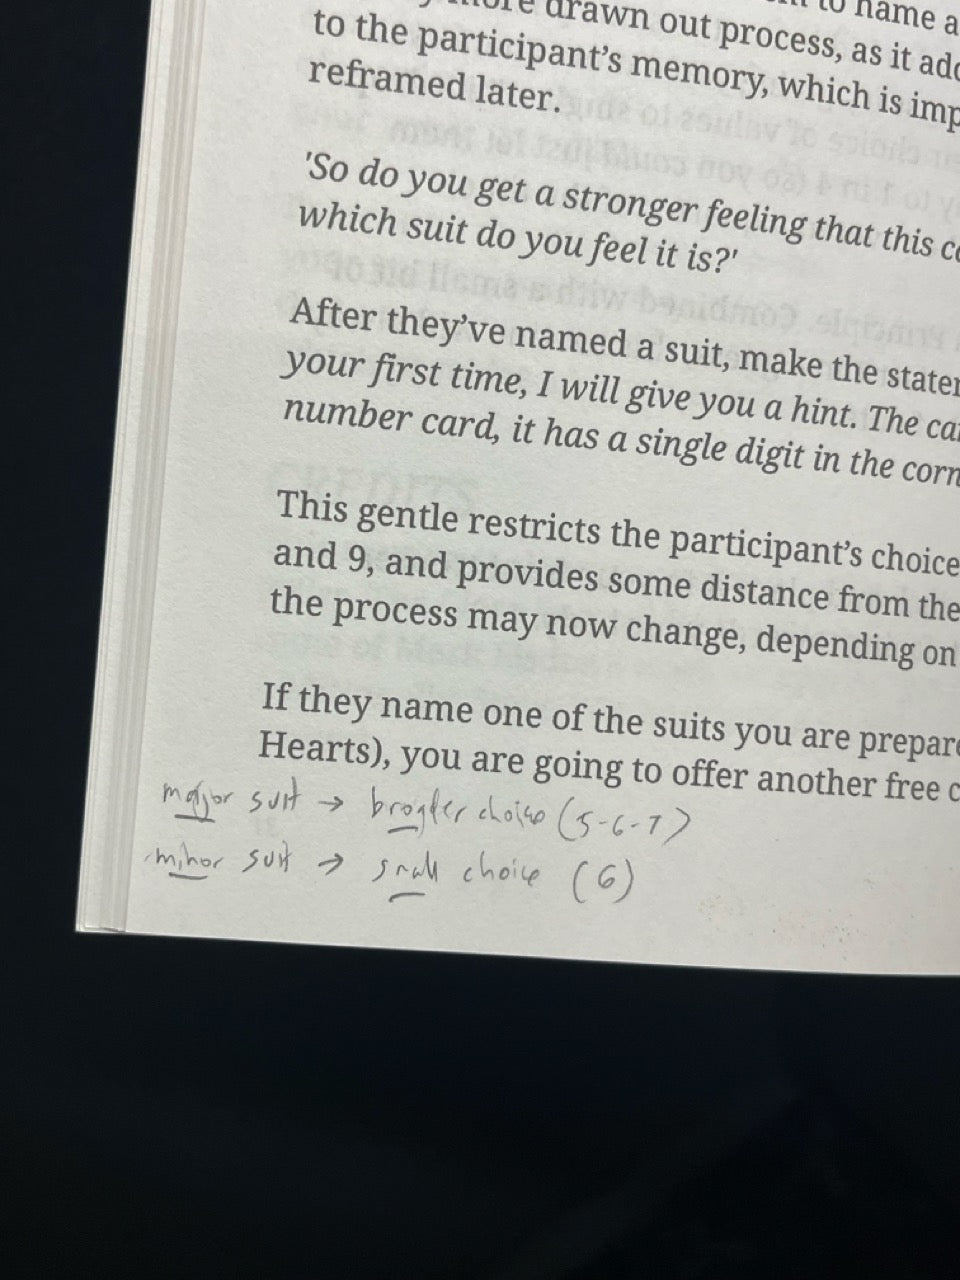 more drawn out process, as it
to the participant's memory, which is
reframed later.
'So do you get a stronger feeling that this
which suit do you feel it is?'
After they've named a suit, make the
your first time, I will give you a hint. The
number card, it has a single digit in the
This gentle restricts the participant's choice
and 9, and provides some distance from the
the process may now change, depending on
If they name one of the suits you are
Hearts), you are going to offer another free
major suit → broader choice (5-6-7)
minor suit → small choice (6)